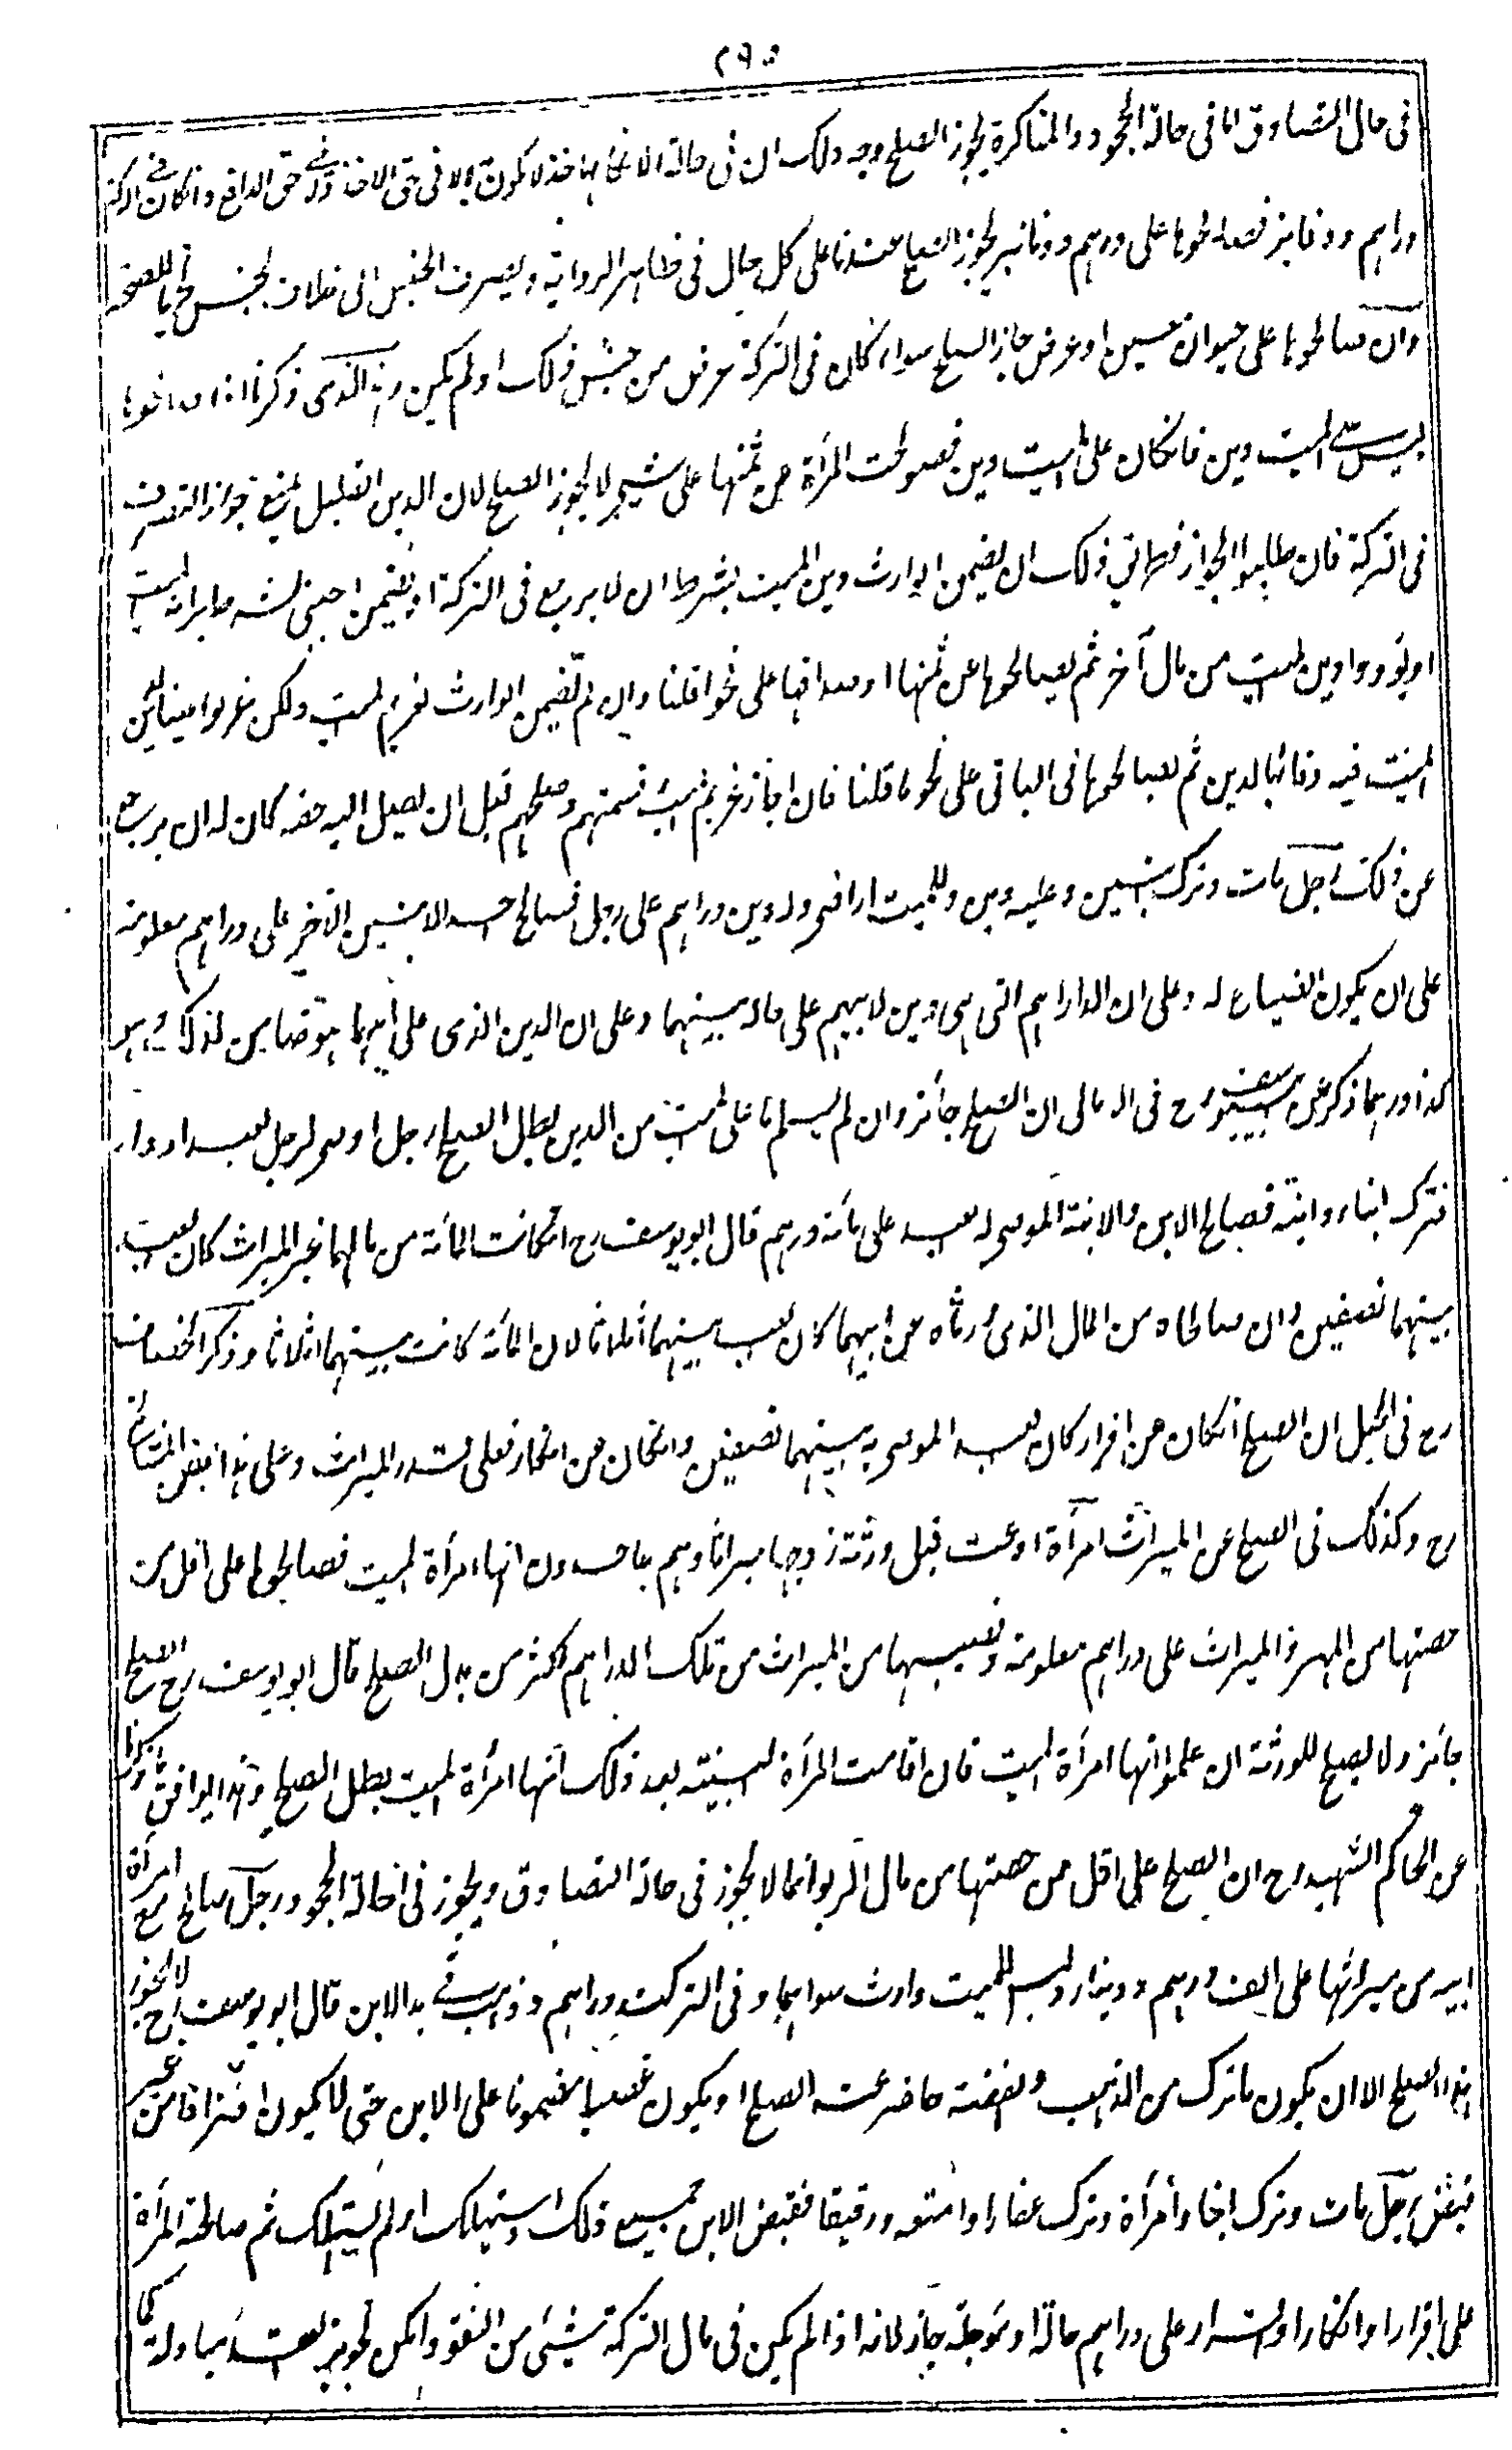 ٢٩٥
في حال التصادق اما في حالة الجحود والمناكرة يجوز الصلح وجه ذلك ان في حالة الانكار ما يأخذ لا يكون بدلا في حق الاخذ ولا في حق الدافع وانكان في التركة
دراهم ودنانير فصالحوها على درهم ودنانير يجوز الصلح عندنا على كل حال في ظاهر الرواية ويصرف الجنس الى خلاف الجنس تحريا للصحة
وان صالحوها على حيوان معين او عرض جاز الصلح سواء كان في التركة عرض من جنس ذلك او لم يكن وهذا الذي ذكرنا اذا
ليس على الميت دين فانكان على الميت دين فصولحت المرأة عن ثمنها على شيء لا يجوز الصلح لان الدين القليل يمنع جواز التصرف
في التركة فان طلبوا الجواز فطريق ذلك ان يضمن الوارث دين الميت بشرط ان لا يرجع في التركة او يضمن اجنبي بشرط براءة الميت
او يؤدوا دين الميت من مال آخر ثم يصالحوها عن ثمنها او صداقها على نحو ما قلنا وان لم يضمن الوارث لغريم الميت ولكن عزلوا عينا لدين
الميت فيه وفاء بالدين ثم يصالحوها في الباقي على نحو ما قلنا فان اجاز غريم الميت قسمتهم وصلحهم قبل ان يصل اليه حقه كان له ان يرجع
عن ذلك رجل مات وترك ابنين وعليه دين وللميت اراضي وله دين دراهم على رجل فصالح احد الابنين الآخر على دراهم معلومة
على ان يكون الضياع له وعلى ان الدراهم التي هي دين لابيهم على حاله بينهما وعلى ان الدين الذي على ابيهما هو ضامن لذلك وهو
كذا درهما ذكر عن ابي يوسف رح في الامالي ان الصلح جائز وان لم يسلم ما على الميت من الدين بطل الصلح رجل اوصى لرجل بعبد او دار
فترك ابنا وابنة فصالح الابن والابنة الموصى له بالعبد على مائة درهم قال ابو يوسف رح انكانت المائة من مالهما غير الميراث كان العبد
بينهما نصفين وان صالحاه من المال الذي ورثاه عن ابيهما كان العبد بينهما اثلاثا لان المائة كانت بينهما اثلاثا وذكر الخصاف
رح في الحيل ان الصلح انكان عن اقرار كان العبد الموصى به بينهما نصفين وانكان عن انكار فعلى قدر الميراث وعلى هذا بعض المشائخ
رح وكذلك في الصلح عن الميراث امرأة ادعت قبل ورثة زوجها ميراثا وهم جاحدون انها امرأة الميت فصالحوها على اقل من
حصتها من المهر والميراث على دراهم معلومة ونصيبها من الميراث من تلك الدراهم اكثر من بدل الصلح قال ابو يوسف رح الصلح
جائز ولا يصلح للورثة ان علموا انها امرأة الميت فان اقامت المرأة البينة بعد ذلك انها امرأة الميت بطل الصلح وهذا يوافق ما ذكرنا
عن الحاكم الشهيد رح ان الصلح على اقل من حصتها من مال الربوا انما لا يجوز في حالة التصادق ويجوز في حالة الجحود رجل صالح مع امرأة
ابيه من ميراثها على الف درهم ودينار وليس للميت وارث سواهما وفي التركة دراهم وذهب في يد الابن قال ابو يوسف رح لا يجوز
هذا الصلح الا ان يكون ما ترك من الذهب والفضة حاضر عند الصلح او يكون غصبا مضمونا على الابن حتى لا يكون افتراقا من غير
قبض رجل مات وترك ابنا وامرأة وترك عقارا وامتعة ورقيقا فقبض الابن جميع ذلك واستهلك او لم يستهلك ثم صالحته المرأة
على اقرار او انكار او اقرار على دراهم حالة او مؤجلة جاز لانه اذا لم يكن في مال التركة شيئ من النقود امكن تجويزه بعقد مبادلة كما